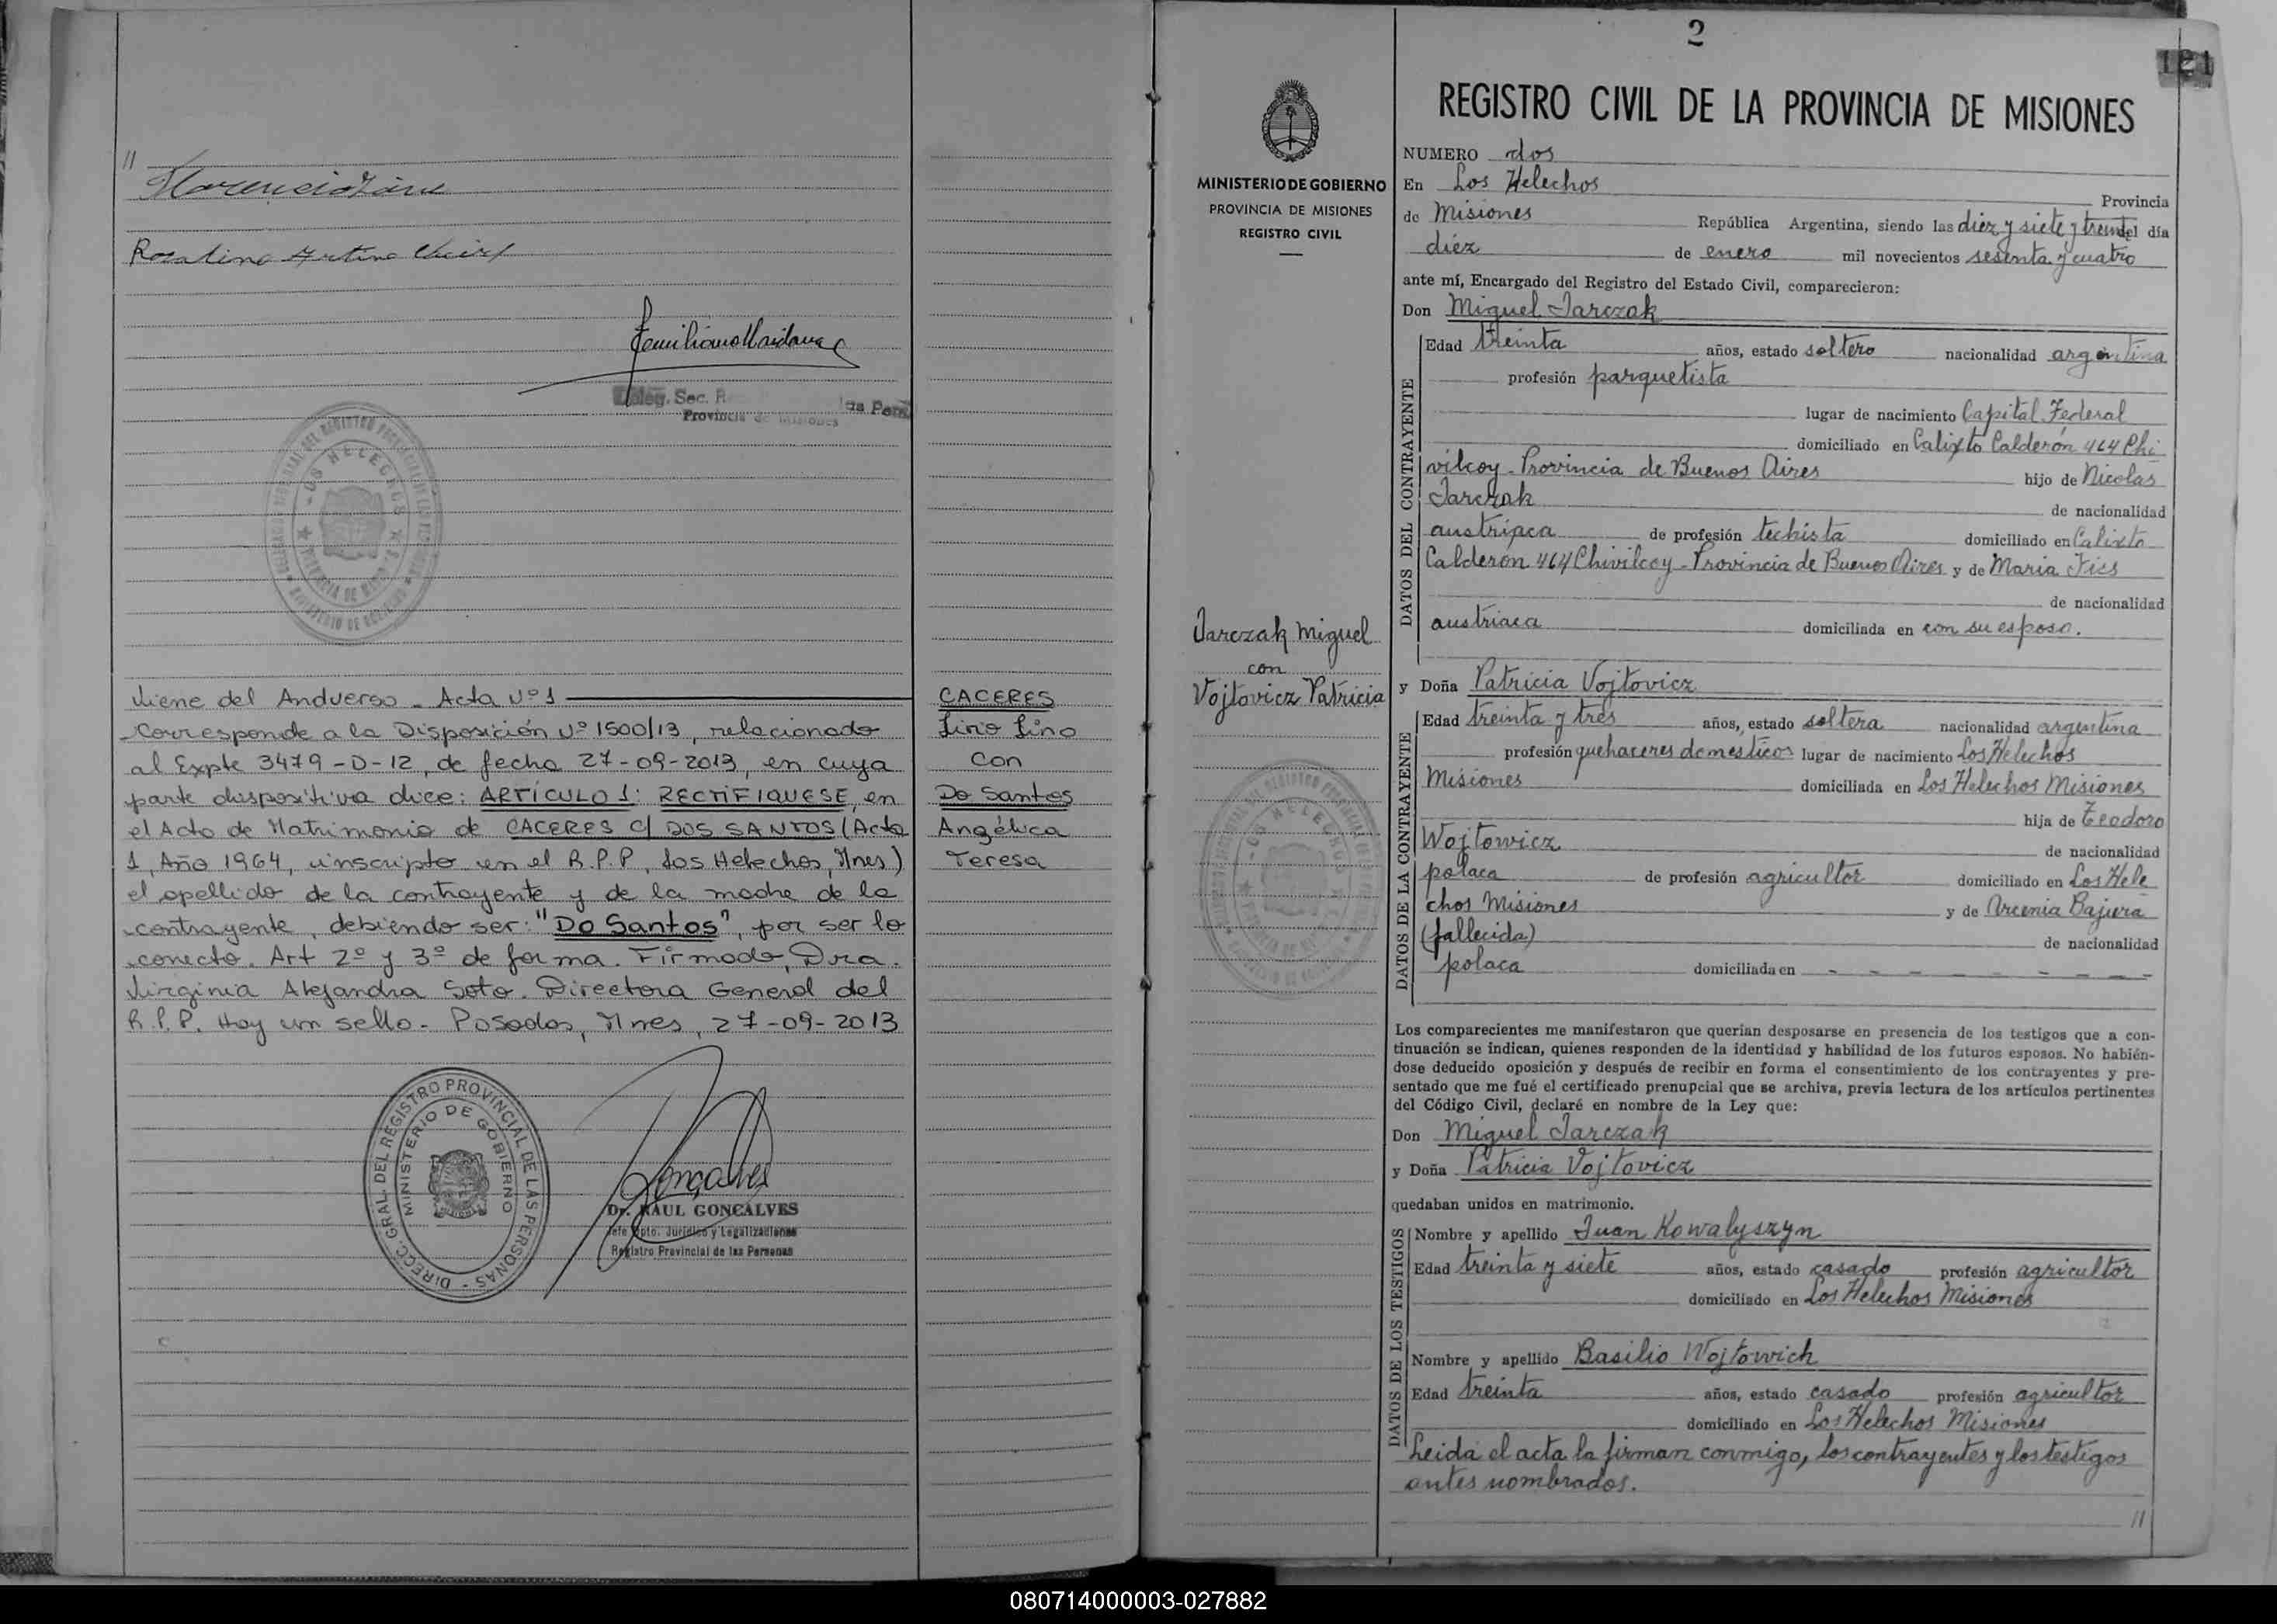 //
Viene del Andverso - Acta Nº 1
Corresponde a la Disposición Nº 1500/13, relacionado
al Expte 3479-D-12, de fecha 27-09-2013, en cuya
parte dispositiva dice: ARTÍCULO 1: RECTIFIQUESE, en
el Acto de Matrimonio de CACERES C/ DOS SANTOS (Acta
1, Año 1964, inscripto en el R.P.P, Los Helechos, Mnes)
el apellido de la contrayente y de la madre de la
contrayente, debiendo ser: "Do Santos", por ser lo
correcto. Art 2º y 3º de forma. Firmado, Dra.
Virginia Alejandra Soto. Directora General del
R.P.P. Hay un sello - Posadas, Mnes, 27-09-2013
CACERES
Lirio Lino
Con
Do Santos
Angélica
Teresa
DIRECC. GRAL. DEL REGISTRO PROVINCIAL DE LAS PERSONAS -
MINISTERIO DE GOBIERNO
Goncalves
Dr. RAUL GONCALVES
Jefe Dpto. Jurídico y Legalizaciones
Registro Provincial de las Personas
2
121
MINISTERIO DE GOBIERNO
PROVINCIA DE MISIONES
REGISTRO CIVIL
Jarczak Miguel
con
Vojtovicz Patricia
REGISTRO CIVIL DE LA PROVINCIA DE MISIONES
NUMERO dos
En Los Helechos Provincia
de Misiones República Argentina, siendo las diez y siete y treinta del día
diéz de enero mil novecientos sesenta y cuatro
ante mí, Encargado del Registro del Estado Civil, comparecieron:
Don Miguel Jarczak
DATOS DEL CONTRAYENTE
Edad treinta años, estado soltero nacionalidad argentina
profesión parquetista
lugar de nacimiento Capital Federal
domiciliado en Calixto Calderón 464 Chi
vilcoy - Provincia de Buenos Aires hijo de Nicolas
Jarczak de nacionalidad
austriaca de profesión techista domiciliado en Calixto
Calderón 464 Chivilcoy - Provincia de Buenos Aires y de Maria Fics
de nacionalidad
austriaca domiciliada en con su esposo.
y Doña Patricia Vojtovicz
DATOS DE LA CONTRAYENTE
Edad treinta y tres años, estado soltera nacionalidad argentina
profesión quehaceres domesticos lugar de nacimiento Los Helechos
Misiones domiciliada en Los Helechos Misiones
hija de Teodoro
Wojtowicz de nacionalidad
polaca de profesión agricultor domiciliado en Los Hele
chos Misiones y de Arcenia Bajura
(fallecida) de nacionalidad
polaca domiciliada en - - - - - - - -
Los comparecientes me manifestaron que querían desposarse en presencia de los testigos que a con-
tinuación se indican, quienes responden de la identidad y habilidad de los futuros esposos. No habién-
dose deducido oposición y después de recibir en forma el consentimiento de los contrayentes y pre-
sentado que me fué el certificado prenupcial que se archiva, previa lectura de los artículos pertinentes
del Código Civil, declaré en nombre de la Ley que:
Don Miguel Jarczak
y Doña Patricia Vojtovicz
quedaban unidos en matrimonio.
DATOS DE LOS TESTIGOS
Nombre y apellido Juan Kowalyszyn
Edad treinta y siete años, estado casado profesión agricultor
domiciliado en Los Helechos Misiones
Nombre y apellido Basilio Wojtowich
Edad treinta años, estado casado profesión agricultor
domiciliado en Los Helechos Misiones
Leida el acta la firman conmigo, los contrayentes y los testigos
antes nombrados.
//
080714000003-027882